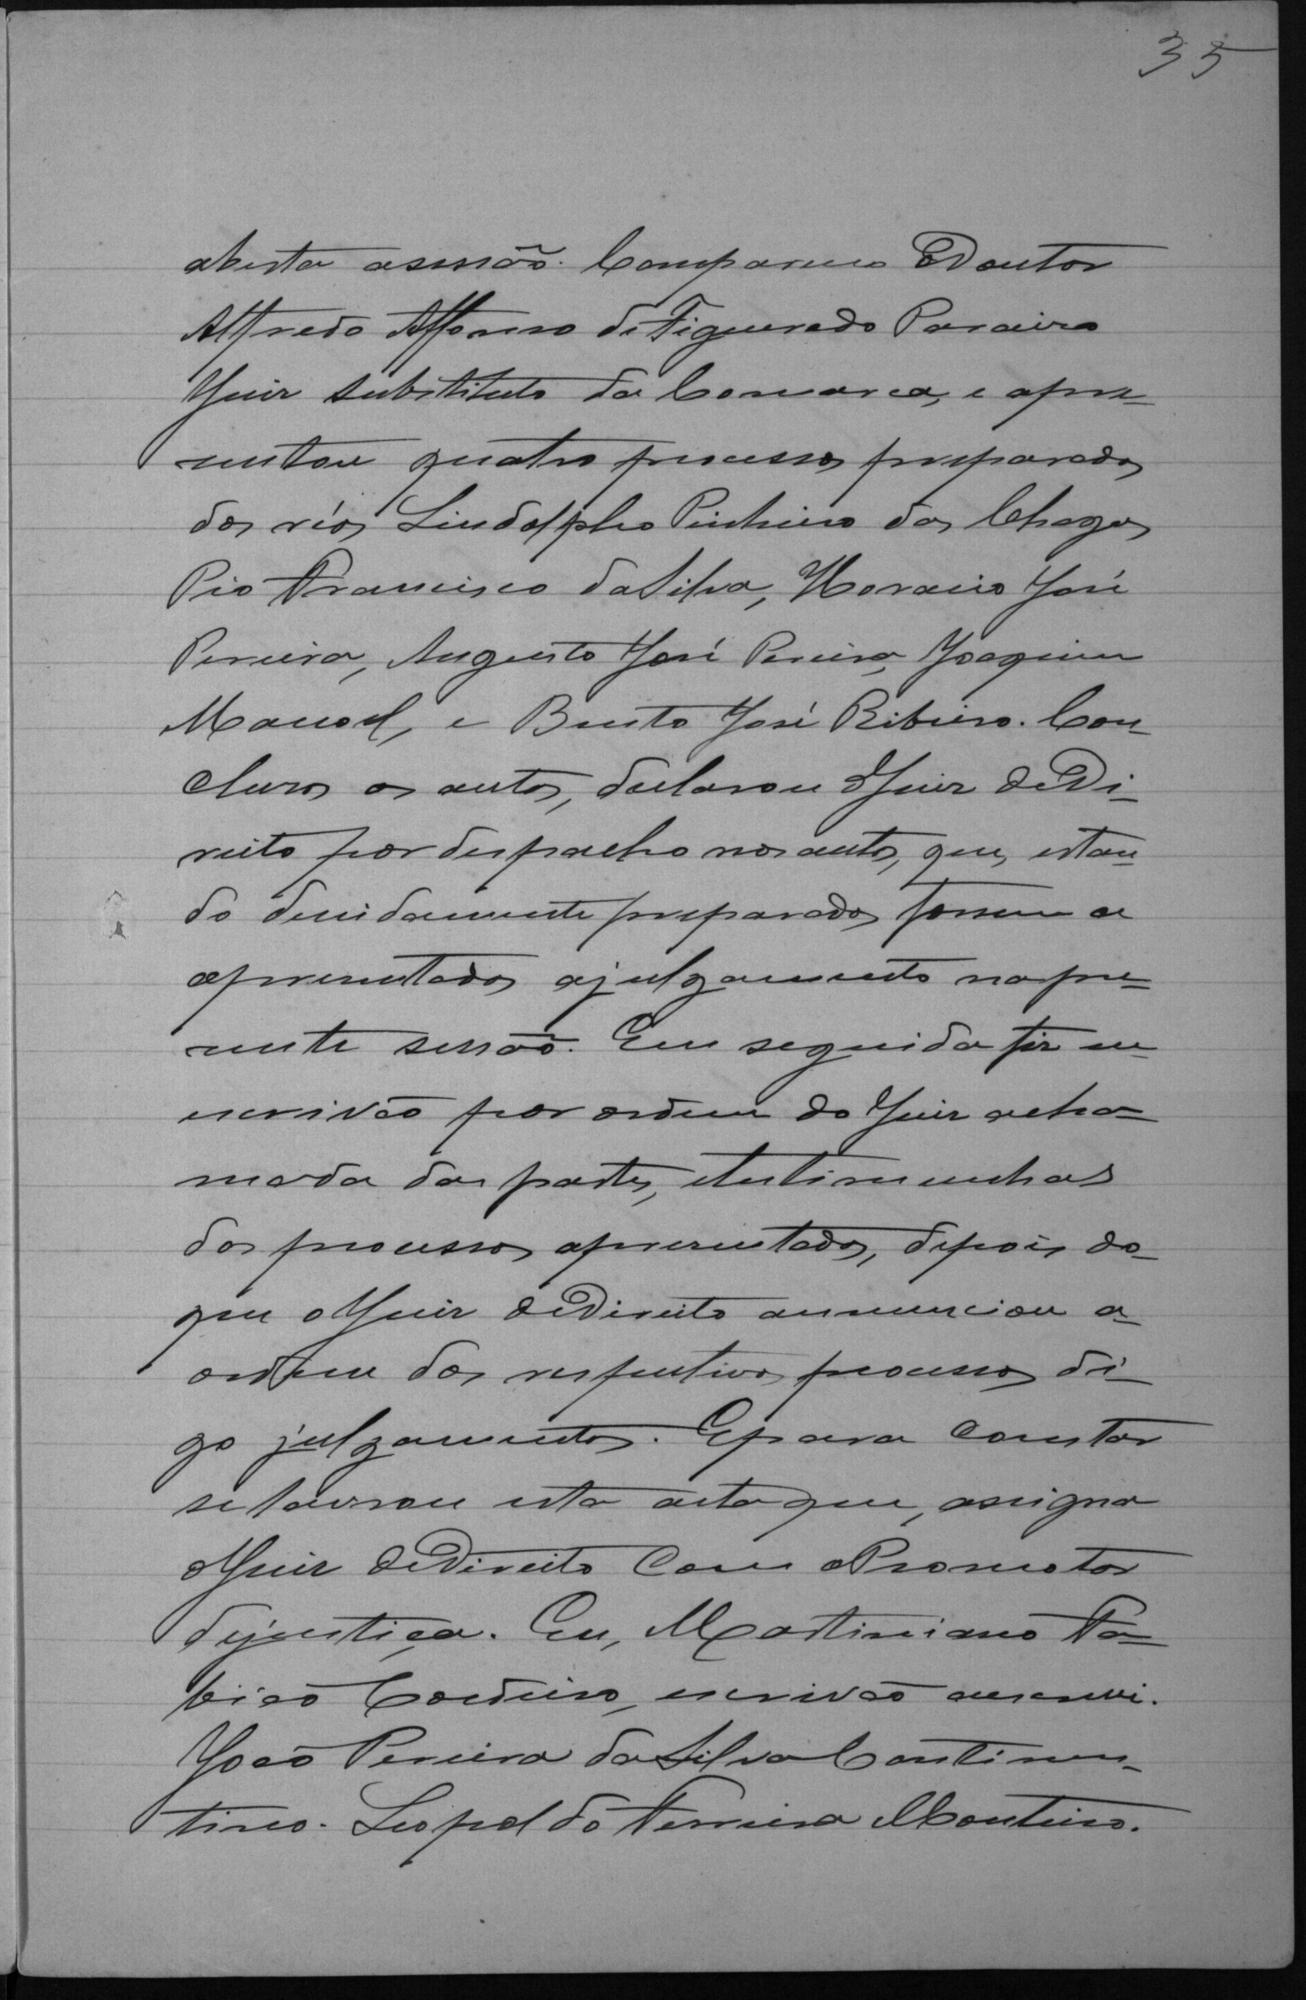 35
aberta asessão. Compareceu ODoutor
Alfredo Affonso de Figueredo Paraiso
Juiz substituto da Comarca, e apre-
sentou quatro processos preparados
dos réos Lindolpho Pinheiro das Chagas
Pio Francisco da Silva, Horacio José
Pereira, Augusto José Pereira, Joaquim
Manoel, e Bento José Ribeiro. Con-
clusos os autos, declarou oJuiz deDi-
reito por despacho nos autos, que, estan-
do devidamente preparados fossem a
apresentados ajulgamento napre-
sente sessão. Em seguida fiz eu
escrivão por ordem do Juiz acha-
mada das partes, etestimunhas
dos processos apresentados, depois do
que oJuiz deDireito annunciou a
ordem dos respectivos processos di-
go julgamentos. Epara constar
se lavrou esta acta que, assigna
oJuiz deDireito com oPromotor
dejustiça. Eu, Martiniano Fa-
bião Cordeiro, escrivão aescrevi.
João Pereira da Silva Continen-
tino. Leopoldo Ferreira Monteiro.